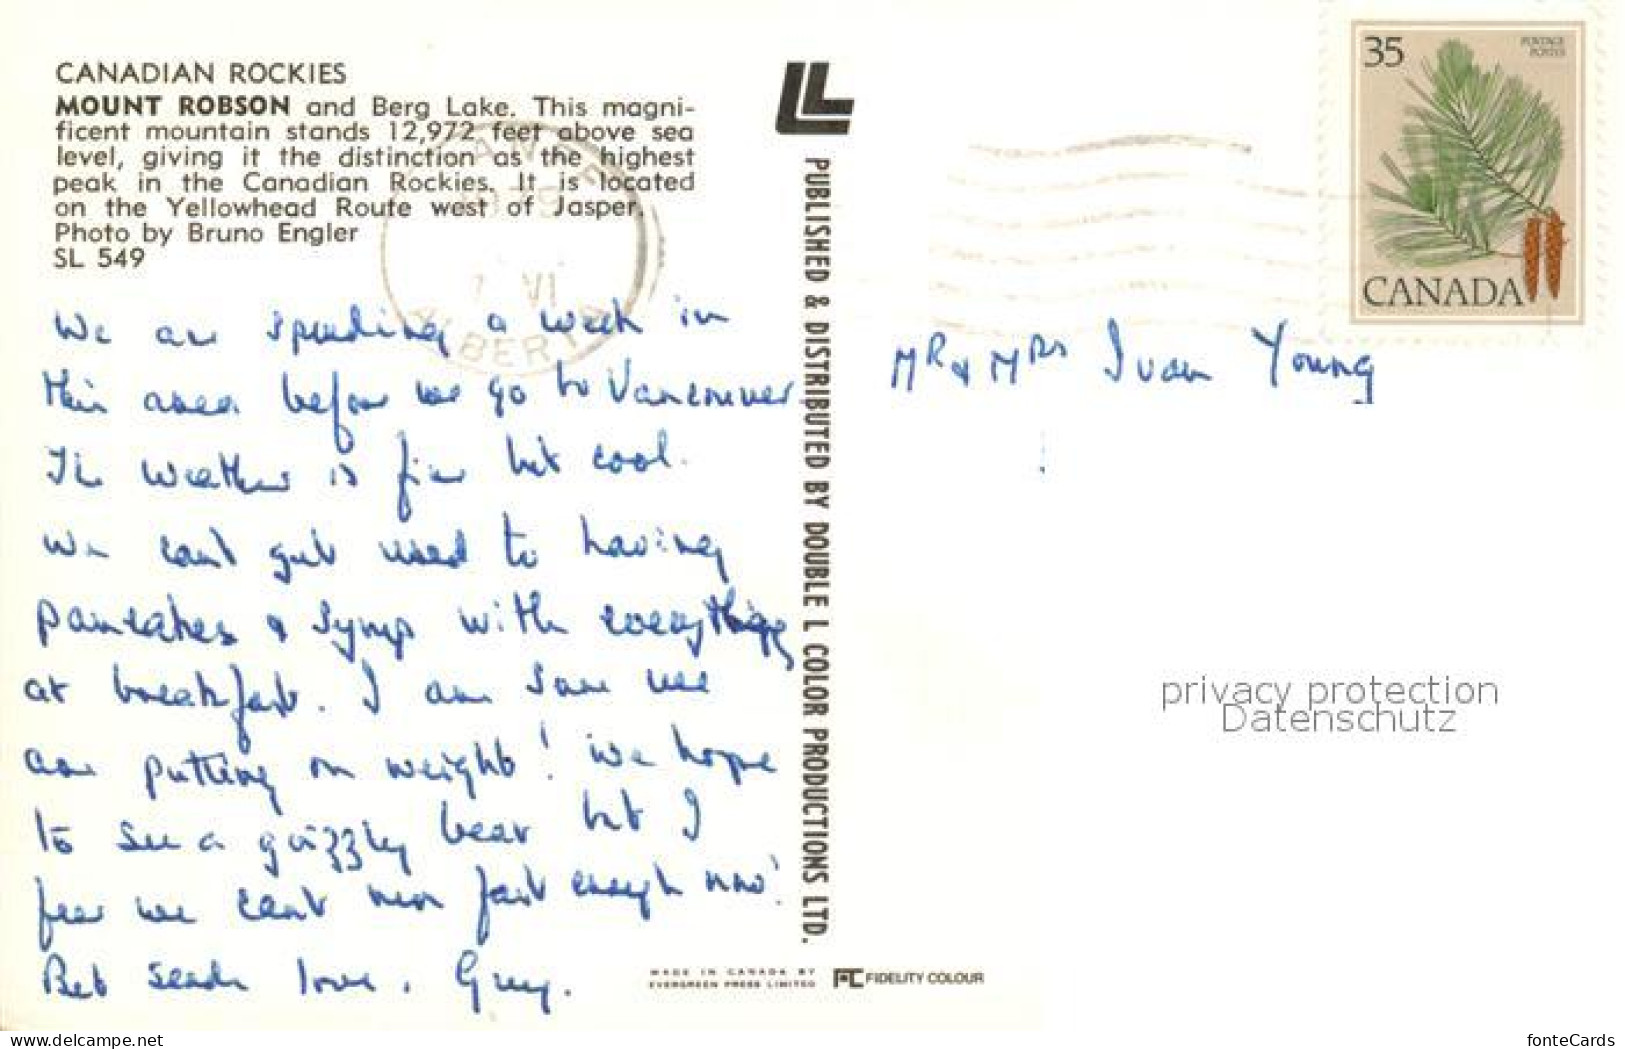 CANADIAN ROCKIES
MOUNT ROBSON and Berg Lake. This magni-
ficent mountain stands 12,972 feet above sea
level, giving it the distinction as the highest
peak in the Canadian Rockies. It is located
on the Yellowhead Route west of Jasper.
Photo by Bruno Engler
SL 549
We are spending a week in
this area before we go to Vancouver.
The weather is fine but cool.
We cant get used to having
pancakes & syrup with everything
at breakfast. I am sure we
are putting on weight! We hope
to see a grizzly bear but I
fear we cant run fast enough now!
Bet sends love.
PUBLISHED & DISTRIBUTED BY DOUBLE L COLOR PRODUCTIONS LTD.
MADE IN CANADA BY
EVERGREEN PRESS LIMITED
FIDELITY COLOUR
VI
ALBERTA
35
POSTAGE
POSTES
CANADA
Mr & Mrs Ivan Young
privacy protection
Datenschutz
www.delcampe.net
fonteCards